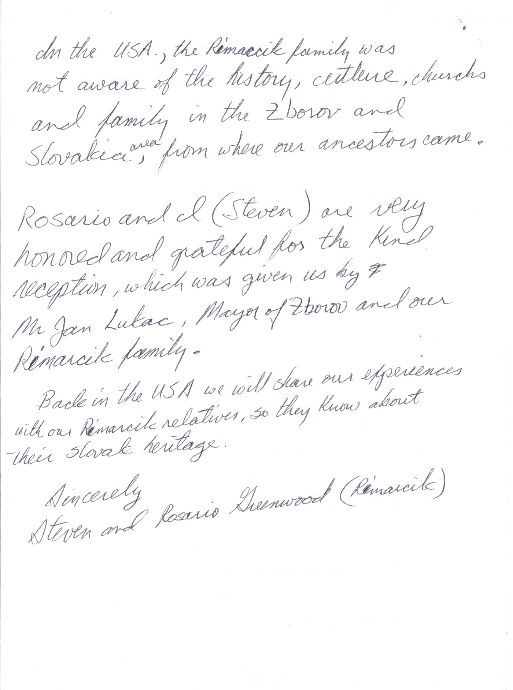 In the USA., the Rimarcik family was
not aware of the history, culture, churchs
and family in the Zborov and
Slovakia area, from where our ancestors came.
Rosario and I (Steven) are very
honored and grateful for the kind
reception, which was given us by
Mr Jan Lukac, Mayor of Zborov and our
Rimarcik family.
Back in the USA we will share our experiences
with our Rimarcik relatives, so they know about
their Slovak heritage.
Sincerely
Steven and Rosario Greenwood (Rimarcik)